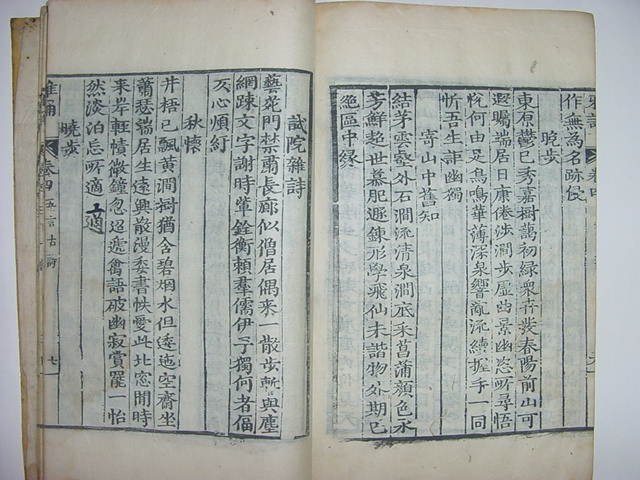 作無為名跡侵
曉步
東原鬱已秀嘉樹藹初綠衆卉發春陽前山可
遐矚端居日康倦涉澗步虛曲景幽恣所尋悟
悅何由足鳥鳴華薄深泉響亂流續握手一同
忻吾生詎幽獨
寄山中舊知
結茅雲壑外石澗流清泉澗底采菖蒲顏色永
芳鮮超世慕肥遯鍊形學飛仙未諧物外期已
絕區中緣
試院雜詩
藝苑門禁肅長廊似僧居偶来一散步暫與塵
網疎文字謝時輩銓衡賴羣儒伊予獨何者偪
仄心煩紆
秋懷
井梧已飄黃澗樹猶含碧烟水但逶迤空齋坐
蕭瑟端居生遠興散漫委書帙愛此北窓閒時
来岸輕幘微鐘忽迢遞禽語破幽寂賞罷一怡
然淡泊忘所適
曉步
雅誦 卷四 五言古詩 七